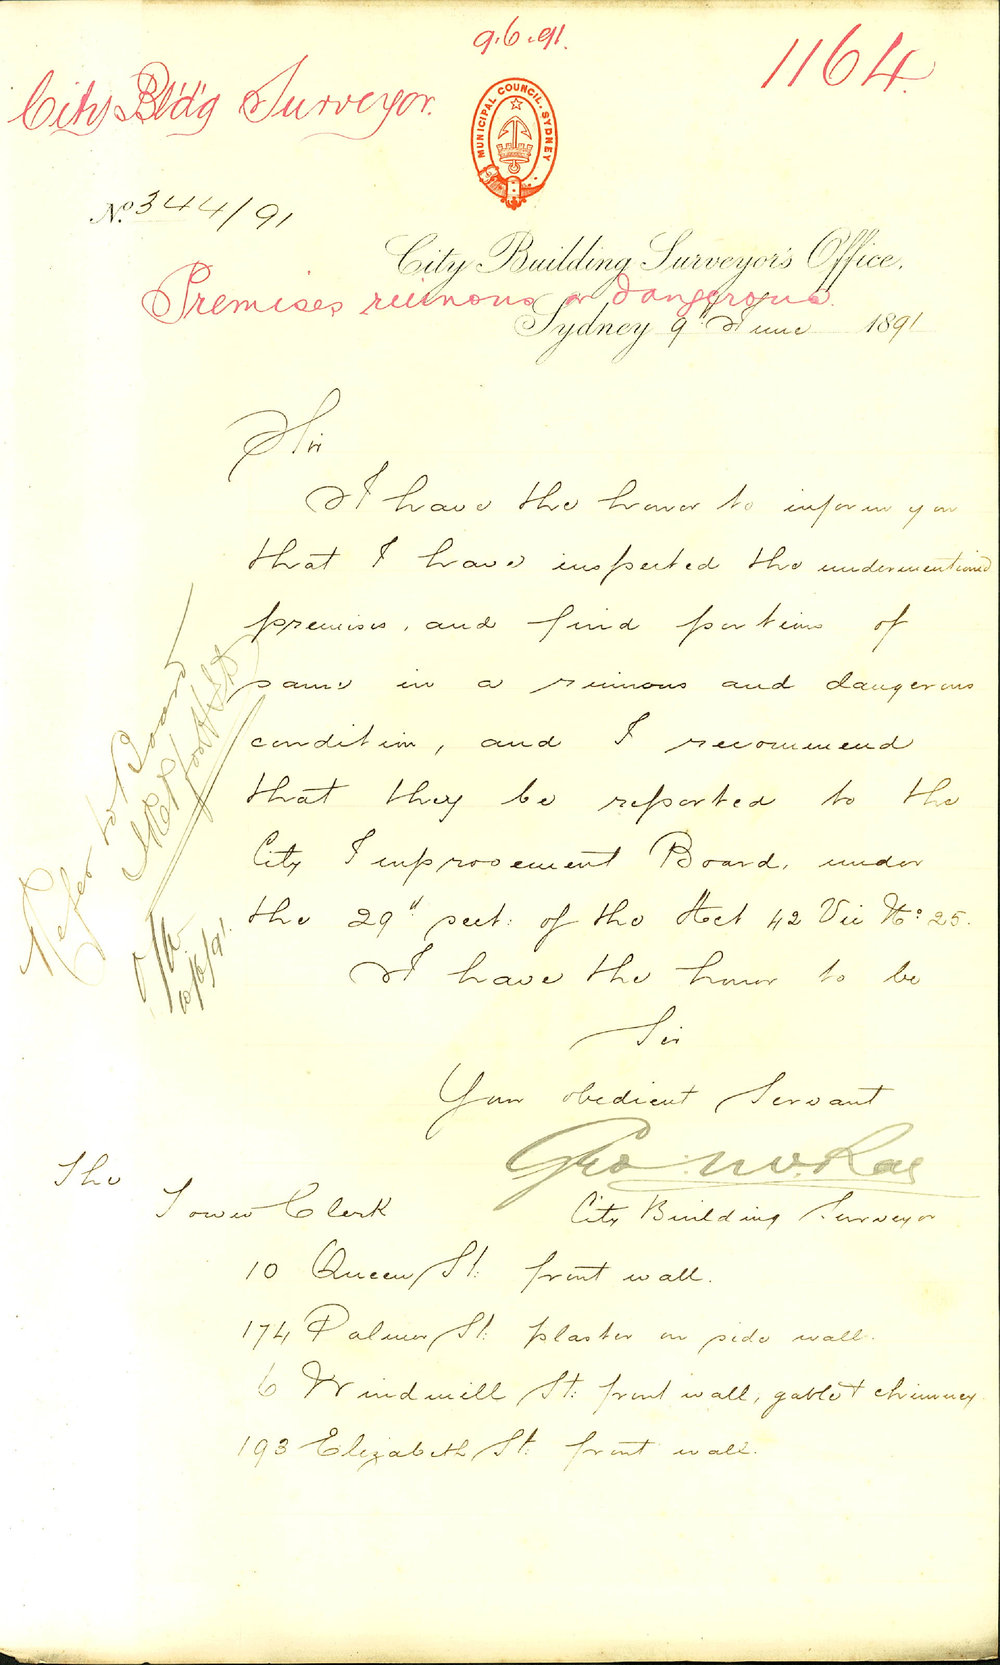 9.6.91.
1164.
City Bld'g Surveyor.
MUNICIPAL COUNCIL. SYDNEY
No. 344/91
City Building Surveyor's Office.
Premises ruinous or dangerous.
Sydney 9th June 1891
Sir
I have the honor to inform you
that I have inspected the undermentioned
premises, and find portions of
same in a ruinous and dangerous
condition, and I recommend
that they be reported to the
City Improvement Board, under
the 29th sect: of the Act 42 Vic No. 25.
I have the honor to be
Sir
Your obedient Servant
Geo McRae
City Building Surveyor
The
Town Clerk
10 Queen St: front wall.
174 Palmer St: plaster on side wall.
6 Windmill St: front wall, gable & chimney
193 Elizabeth St: front wall.
Refer to Board
10/6/91.